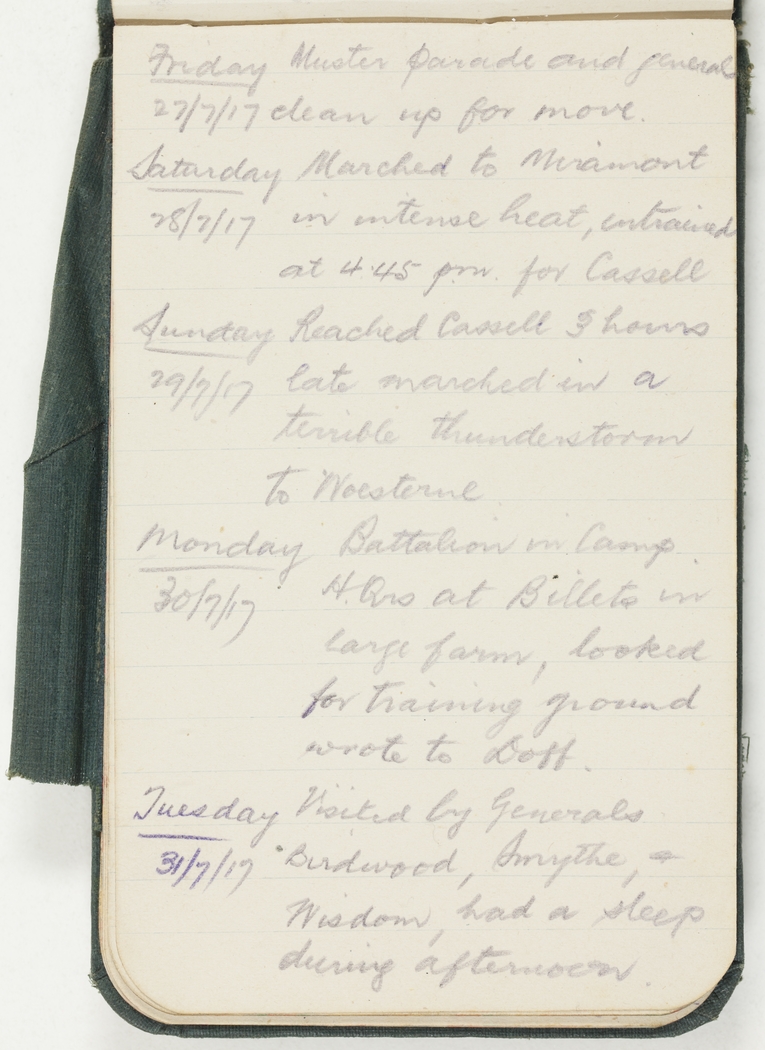 Friday Muster parade and general
27/7/17 clean up for move.
Saturday Marched to Miramont
28/7/17 in intense heat, entrained
at 4.45 pm. for Cassell
Sunday Reached Cassell 3 hours
29/7/17 late marched in a
terrible thunderstorm
to Woesterne
Monday Battalion in Camp
30/7/17 H.Qrs at Billets in
large farm, looked
for training ground
wrote to Doff.
Tuesday Visited by Generals
31/7/17 Birdwood, Smythe, +
Wisdom, had a sleep
during afternoon.